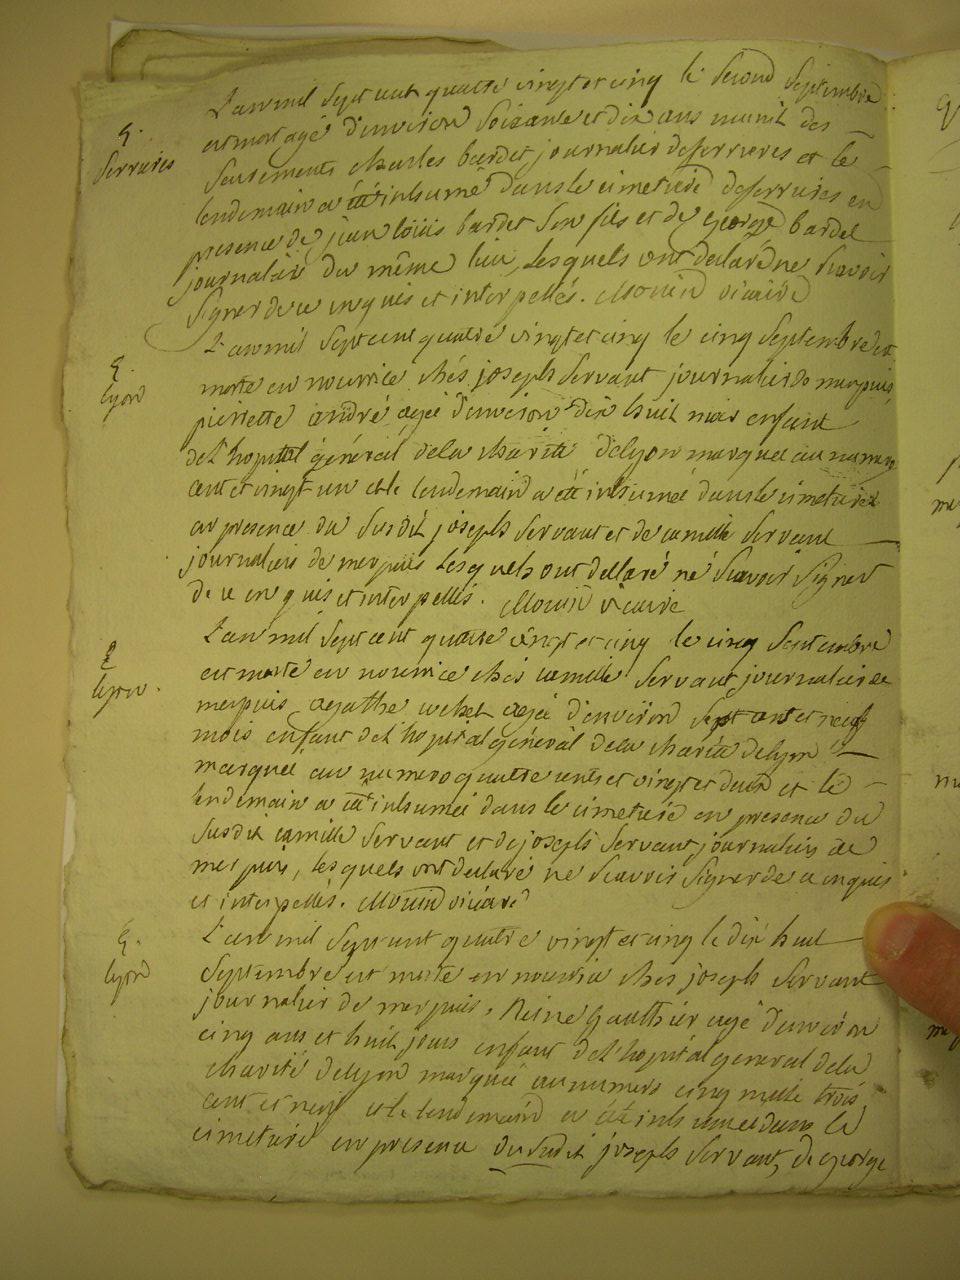 L'an mil sept cent quatre vingt et cinq le second septembre
§.
Serrieres
est mort agé d'environ soixante et dix ans munit des
sacrements charles bardet journalier deserrieres et le
lendemain a été inhumé dans le cimetiere deserrieres en
presence de jean loüis bardet son fils et de george bardet
journalier du même lieu, lesquels ont declaré ne scavoir
signer de ce enquis et interpellés. Mouin vicaire
L'an mil sept cent quatre vingt et cinq le cinq septembre est
§.
lyon
morte en nourrice chés joseph servant journalier de merpuis
pierrette andré agée d'environ dix huit mois enfant
de l'hopital général de la charité de lyon marquée au numero
cent et vingt un et le lendemain a été inhumée dans le cimetiere
en presence du susdit joseph servant et de camille servant
journaliers de merpuis lesquels ont declaré ne scavoir signer
de ce enquis et interpellés. Mouin vicaire
L'an mil sept cent quatre vingt et cinq le cinq septembre
§
lyon.
est morte en nourrice chés camille servant journalier de
merpuis agathe agée d'environ et neuf
mois enfant de l'hopital général de la charité de lyon
marquée au numero quatre cents et vingt et deux et le
lendemain a été inhumée dans le cimetiere en presence du
susdit camille servant et de joseph servant journaliers de
merpuis, lesquels ont declaré ne scavoir signer de ce enquis
et interpellés. Mouin vicaire
L'an mil sept cent quatre vingt et cinq le dix huit
§.
lyon
septembre est morte en nourrice chés joseph servant
journalier de merpuis, Reine gauthier agé d'environ
cinq ans et huit jours enfant de l'hopital general de la
charité de lyon marquée au numero cinq mille trois
cent et neuf et le lendemain a été inhumée dans le
cimetiere en presence du susdit joseph servant, de george